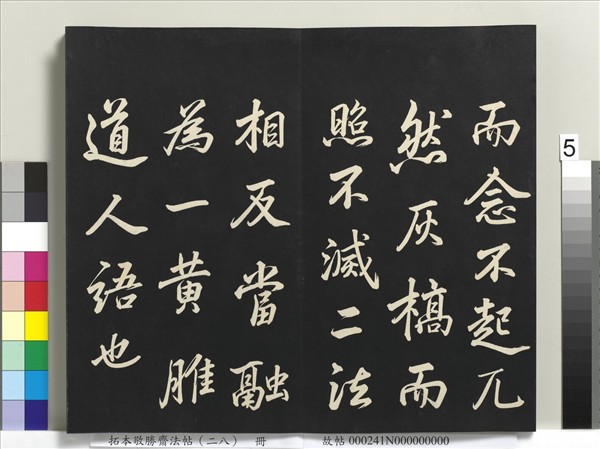 而念不起兀
然灰槁而
照不滅二法
相反當融
為一黄雎
道人語也
5
拓本敬勝齋法帖（二八） 冊 故帖000241N000000000